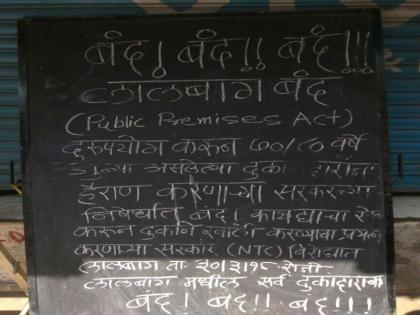 बंद! बंद!! बंद!!!
लालबाग बंद
(Public Premises Act)
दुरुपयोग करून ७०/८० वर्षे
जुन्या असलेल्या दुकानदारांना
हैराण करणाऱ्या सरकारच्या
निषेर्धात बंद! कायद्याचा
करून दुकाने खाली करण्याचा प्रयत्न
करणाऱ्या सरकार (NTC) विरोधात
लालबाग ता. २०|३|१८ रोजी
लालबाग मधील सर्व दुकादाराचा
बंद! बंद!! बंद!!!